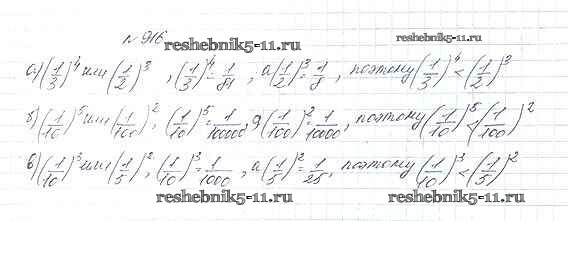 № 916
reshebnik5-11.ru reshebnik5-11.ru
а) (1/3)^4 или (1/2)^3, (1/3)^4 = 1/81, а (1/2)^3 = 1/8, поэтому (1/3)^4 < (1/2)^3
б) (1/10)^5 или (1/100)^2, (1/10)^5 = 1/10000, а (1/100)^2 = 1/10000, поэтому (1/10)^5 < (1/100)^2
в) (1/10)^3 или (1/5)^2, (1/10)^3 = 1/1000, а (1/5)^2 = 1/25, поэтому (1/10)^3 < (1/5)^2
reshebnik5-11.ru reshebnik5-11.ru